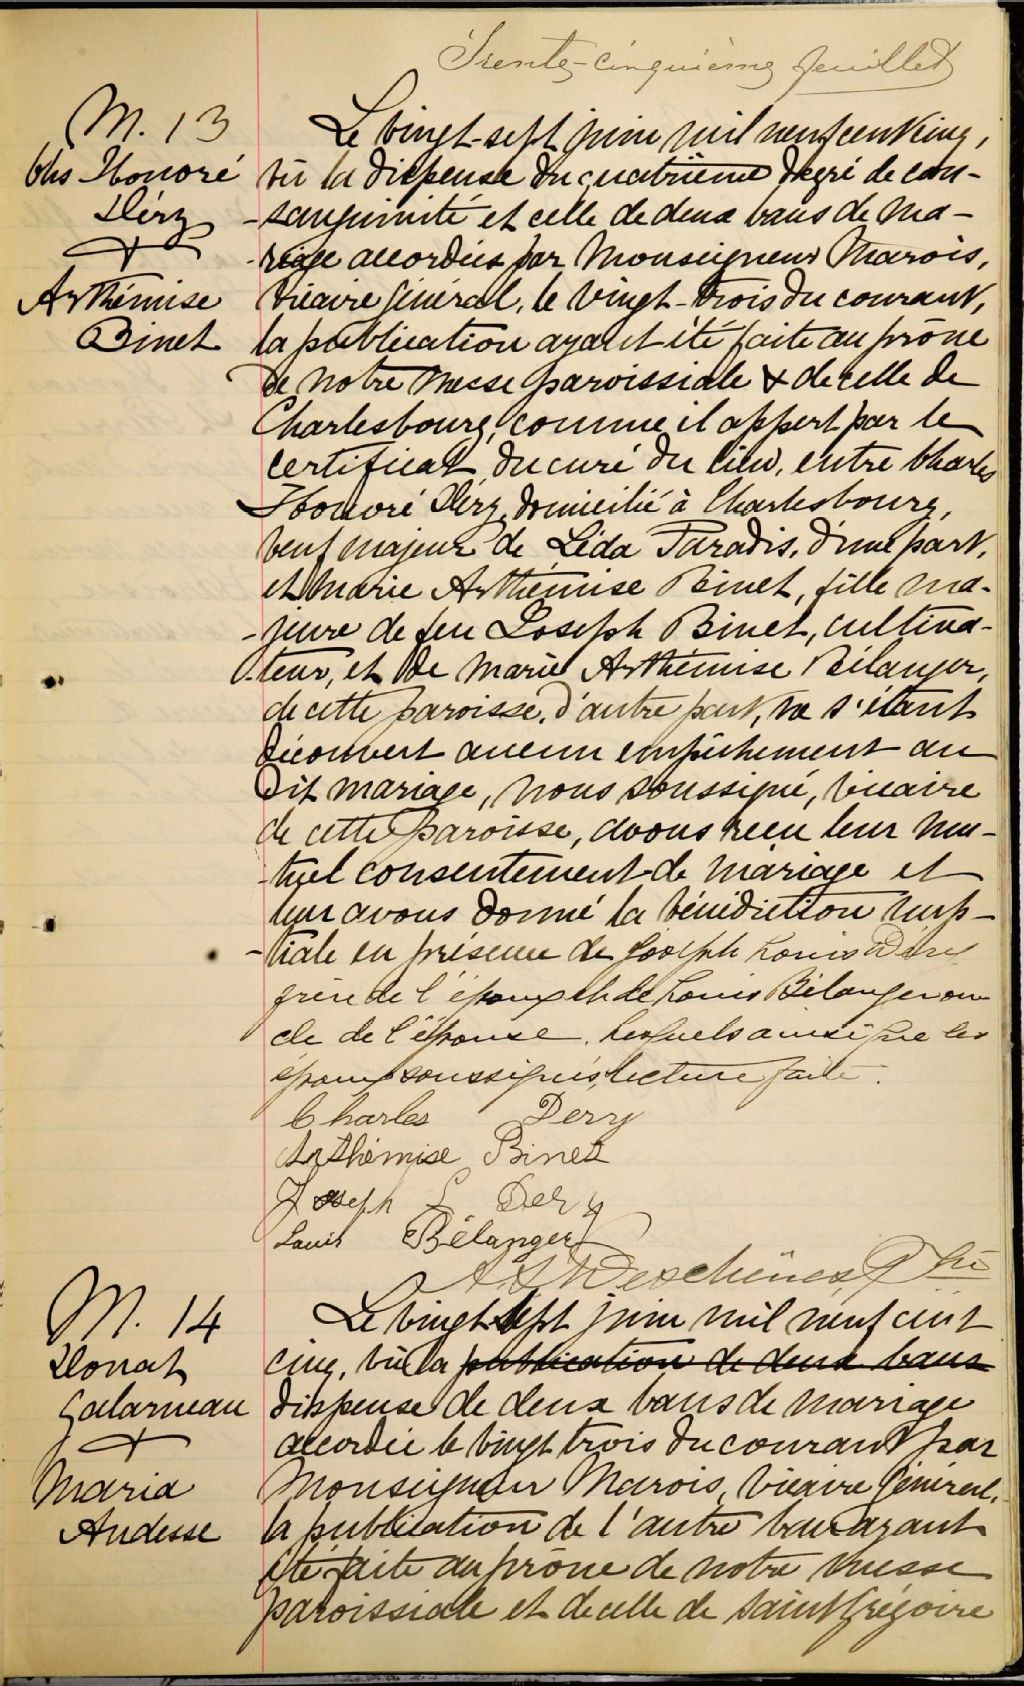 Trente-cinquième feuillet
M. 13
Chs Honoré
Déry
&
Arthémise
Binet
Le vingt-sept juin mil neuf cent cinq,
vû la dispense du quatrième degré de con-
-sanguinité et celle de deux bans de ma-
-riage accordées par Monseigneur Marois,
vicaire général, le vingt-trois du courant,
la publication ayant été faite au prône
de notre messe paroissiale & de celle de
Charlesbourg, comme il appert par le
certificat du curé du lieu, entre Charles
Honoré Déry, domicilié à Charlesbourg,
veuf majeur de Léda Paradis, d'une part,
et Marie Arthémise Binet, fille ma-
-jeure de feu Joseph Binet, cultiva-
-teur, et de Marie Arthémise Bélanger,
de cette paroisse, d'autre part, ne s'étant
découvert aucun empêchement au
dit mariage, nous soussigné, vicaire
de cette paroisse, avons reçu leur mu-
-tuel consentement de mariage et
leur avons donné la bénédiction nup-
-tiale en présence de Joseph Louis Déry
frère de l'époux et de Louis Bélanger on
cle de l'épouse, lesquels ainsi que les
époux soussignés, lecture faite.
Charles Dery
Arthémise Binet
Joseph L Dery
Louis Bélanger
Deschênes Ptre
M. 14
Donat
Galarneau
&
Maria
Audesse
Le vingt sept juin mil neuf cent
cinq, vû la publication de deux bans
dispense de deux bans de mariage
accordée le vingt trois du courant par
Monseigneur Marois, vicaire général,
la publication de l'autre ban ayant
été faite au prône de notre messe
paroissiale et de celle de Saint Grégoire